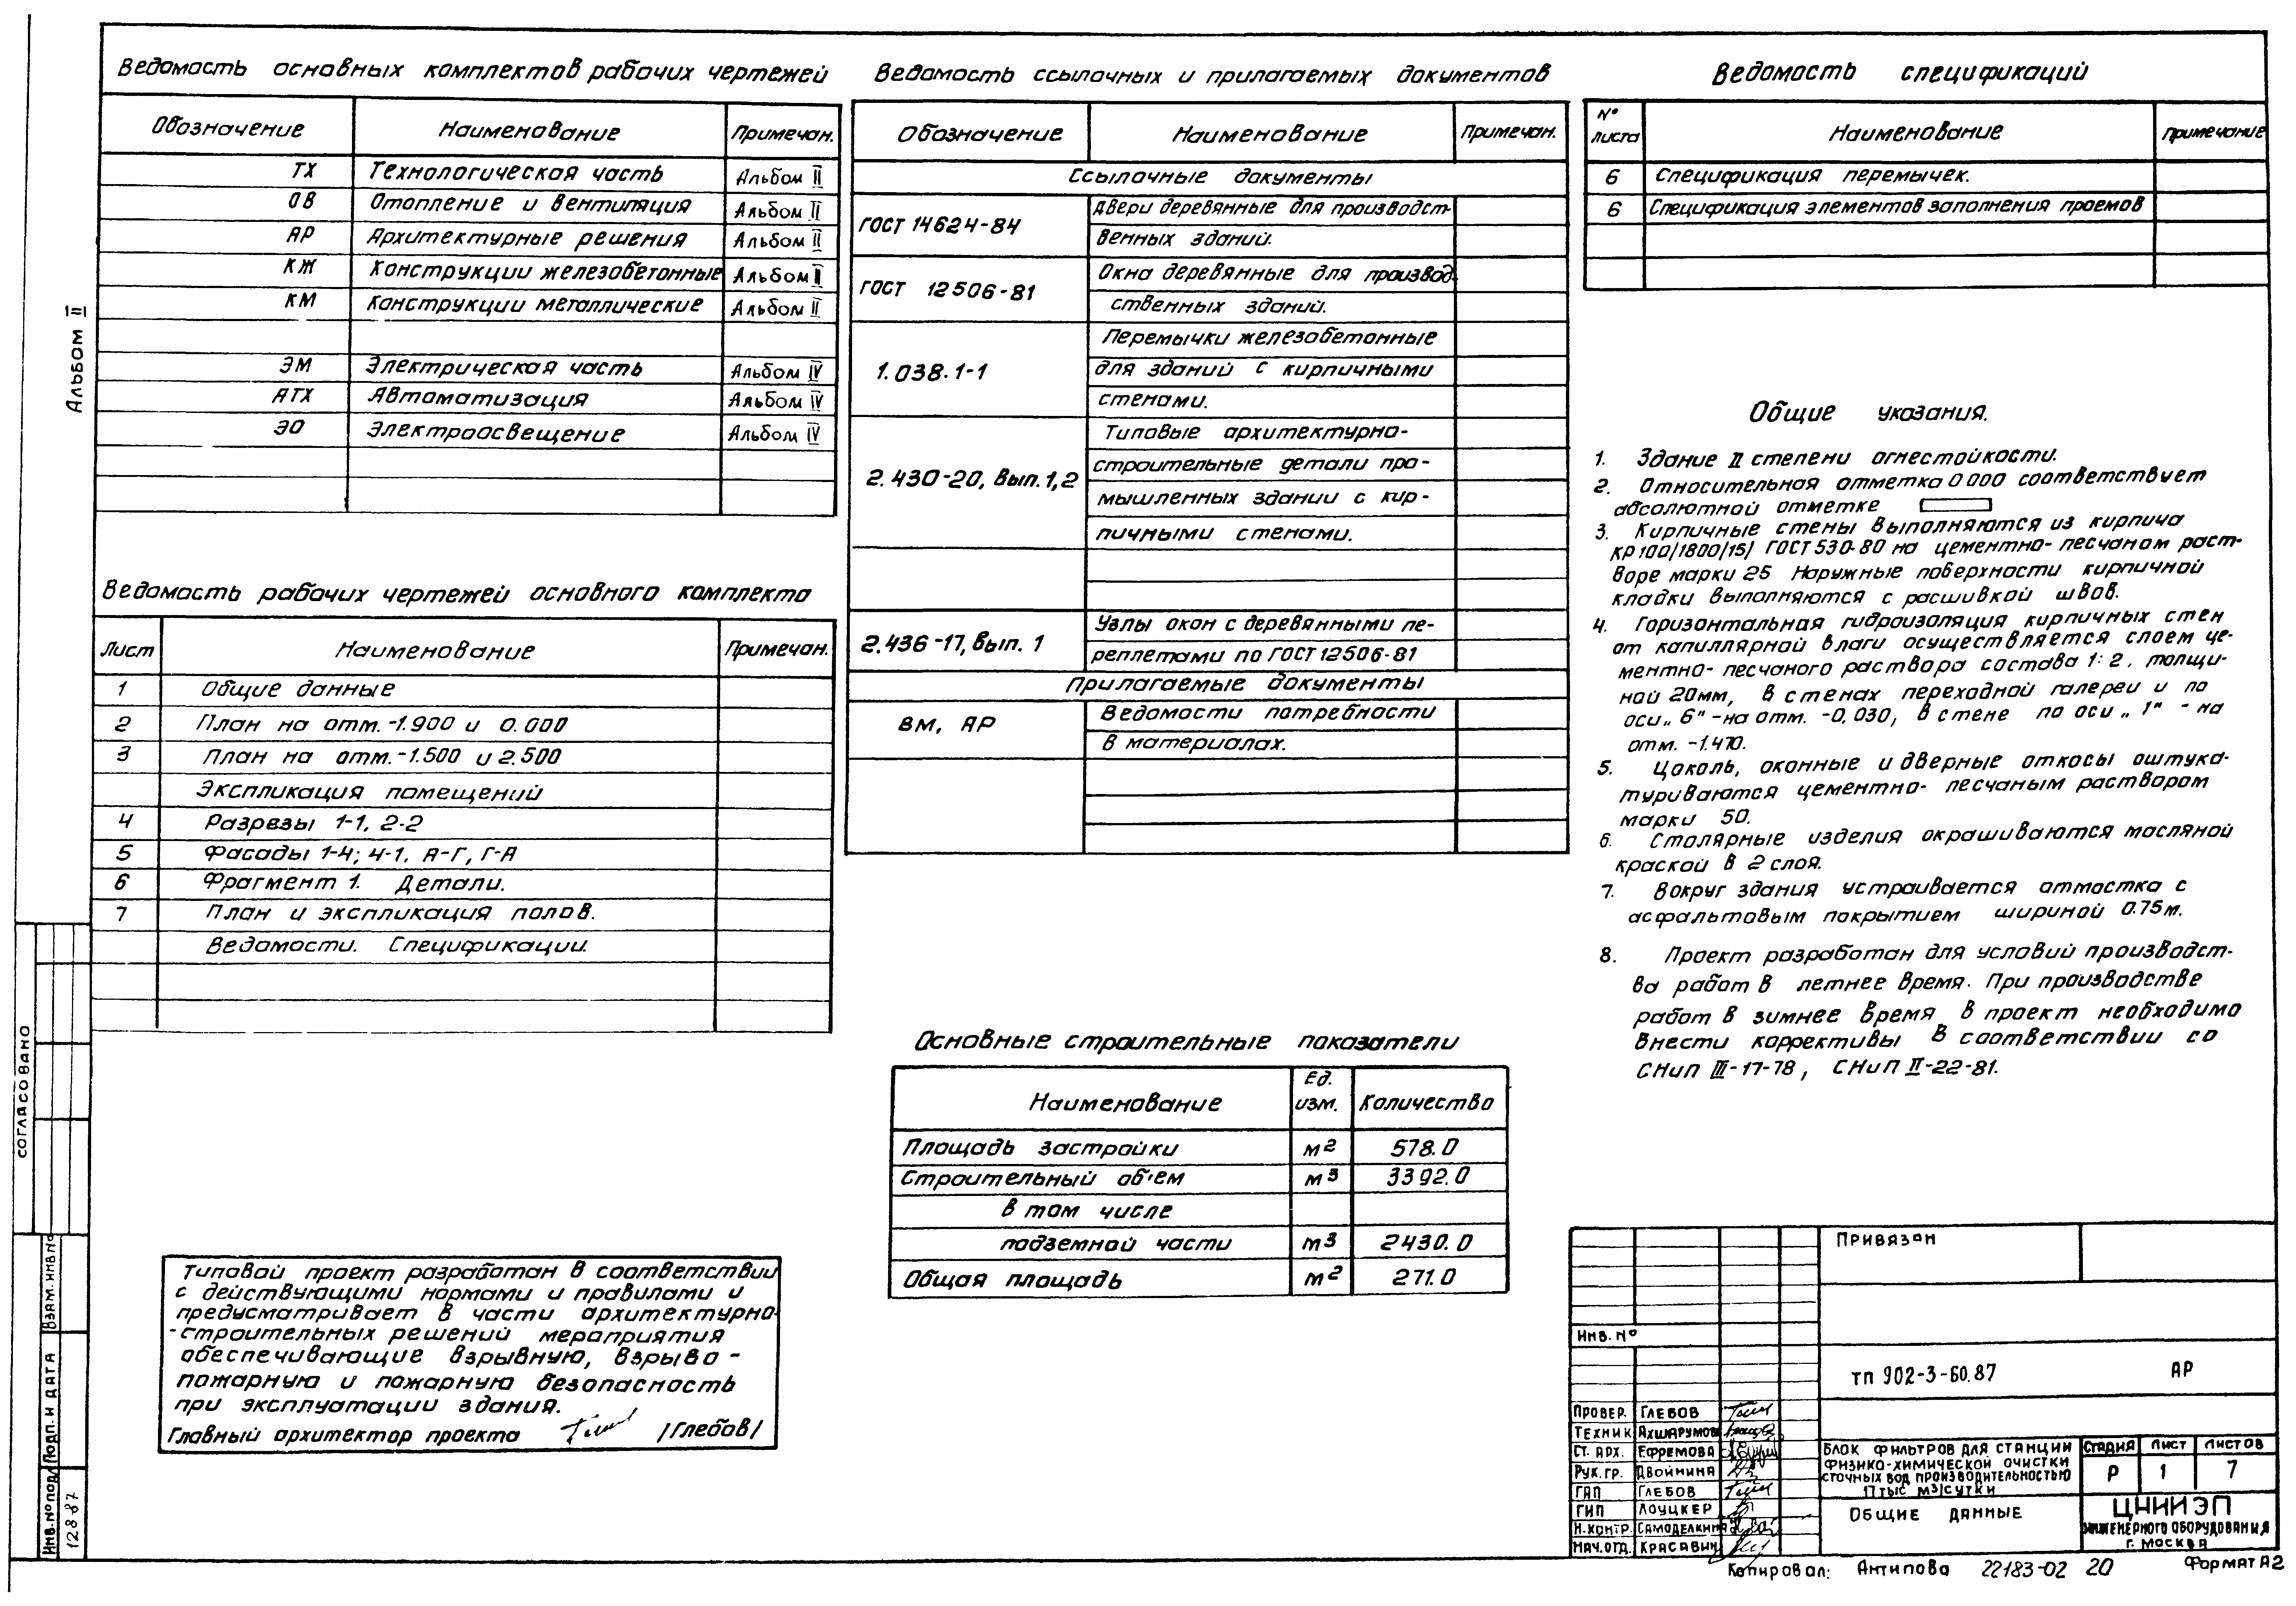 Альбом II
Ведомость основных комплектов рабочих чертежей
Обозначение Наименование Примечан.
ТХ Технологическая часть Альбом II
ОВ Отопление и вентиляция Альбом II
АР Архитектурные решения Альбом II
КЖ Конструкции железобетонные Альбом II
КМ Конструкции металлические Альбом II
ЭМ Электрическая часть Альбом IV
АТХ Автоматизация Альбом IV
ЭО Электроосвещение Альбом IV
Ведомость рабочих чертежей основного комплекта
Лист Наименование Примечан.
1 Общие данные
2 План на отм. -1.900 и 0.000
3 План на отм. -1.500 и 2.500
Экспликация помещений
4 Разрезы 1-1, 2-2
5 Фасады 1-4; 4-1, А-Г, Г-А
6 Фрагмент 1. Детали.
7 План и экспликация полов.
Ведомости. Спецификации.
Типовой проект разработан в соответствии
с действующими нормами и правилами и
предусматривает в части архитектурно-
-строительных решений мероприятия
обеспечивающие взрывную, взрыво-
пожарную и пожарную безопасность
при эксплуатации здания.
Главный архитектор проекта /Глебов/
Ведомость ссылочных и прилагаемых документов
Обозначение Наименование Примечан.
Ссылочные документы
ГОСТ 14624-84 Двери деревянные для производст-
венных зданий.
ГОСТ 12506-81 Окна деревянные для производ-
ственных зданий.
1.038.1-1 Перемычки железобетонные
для зданий с кирпичными
стенами.
2.430-20, Вып. 1,2 Типовые архитектурно-
строительные детали про-
мышленных здании с кир-
пичными стенами.
2.436-17, Вып. 1 Узлы окон с деревянными пе-
реплетами по ГОСТ 12506-81
Прилагаемые документы
ВМ, АР Ведомости потребности
в материалах.
Основные строительные показатели
Наименование Ед. изм. Количество
Площадь застройки м² 578.0
Строительный об'ем м³ 3392.0
в том числе
подземной части м³ 2430.0
Общая площадь м² 271.0
Ведомость спецификаций
№ листа Наименование Примечание
6 Спецификация перемычек.
6 Спецификация элементов заполнения проемов
Общие указания.
1. Здание II степени огнестойкости.
2. Относительная отметка 0 000 соответствует
абсолютной отметке
3. Кирпичные стены выполняются из кирпича
КР 100/1800/15/ ГОСТ 530-80 на цементно-песчаном раст-
воре марки 25 Наружные поверхности кирпичной
кладки выполняются с расшивкой швов.
4. Горизонтальная гидроизоляция кирпичных стен
от капиллярной влаги осуществляется слоем це-
ментно-песчаного раствора состава 1:2, толщи-
ной 20мм, в стенах переходной галереи и по
оси „6" - на отм. -0,030, в стене по оси „1" - на
отм. -1.470.
5. Цоколь, оконные и дверные откосы оштука-
туриваются цементно-песчаным раствором
марки 50.
6. Столярные изделия окрашиваются масляной
краской в 2 слоя.
7. Вокруг здания устраивается отмостка с
асфальтовым покрытием шириной 0.75м.
8. Проект разработан для условий производст-
ва работ в летнее время. При производстве
работ в зимнее время в проект необходимо
внести коррективы в соответствии со
СНиП III-17-78, СНиП II-22-81.
Привязан
Инв. №
ТП 902-3-60.87 АР
Провер. Глебов
Техник Ахшарумов
Ст. арх. Ефремова
Рук. гр. Двойнина
ГАП Глебов
ГИП Лоуцкер
Н.контр. Самоделкина
Нач.отд. Красавин
Блок фильтров для станции
физико-химической очистки
сточных вод производительностью
17 тыс м³/сутки
Стадия Лист Листов
Р 1 7
Общие данные
ЦНИИЭП
инженерного оборудования
г. Москва
Копировал: Антипова 22183-02 20 Формат А2
Согласовано
Взам. инв №
Подп. и дата
Инв. № подл
12887